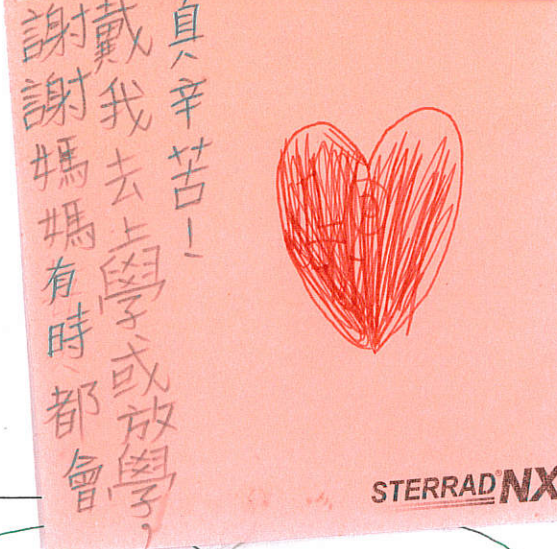 謝謝媽媽有時都會
戴我去上學或放學，
真辛苦！
STERRAD®NX